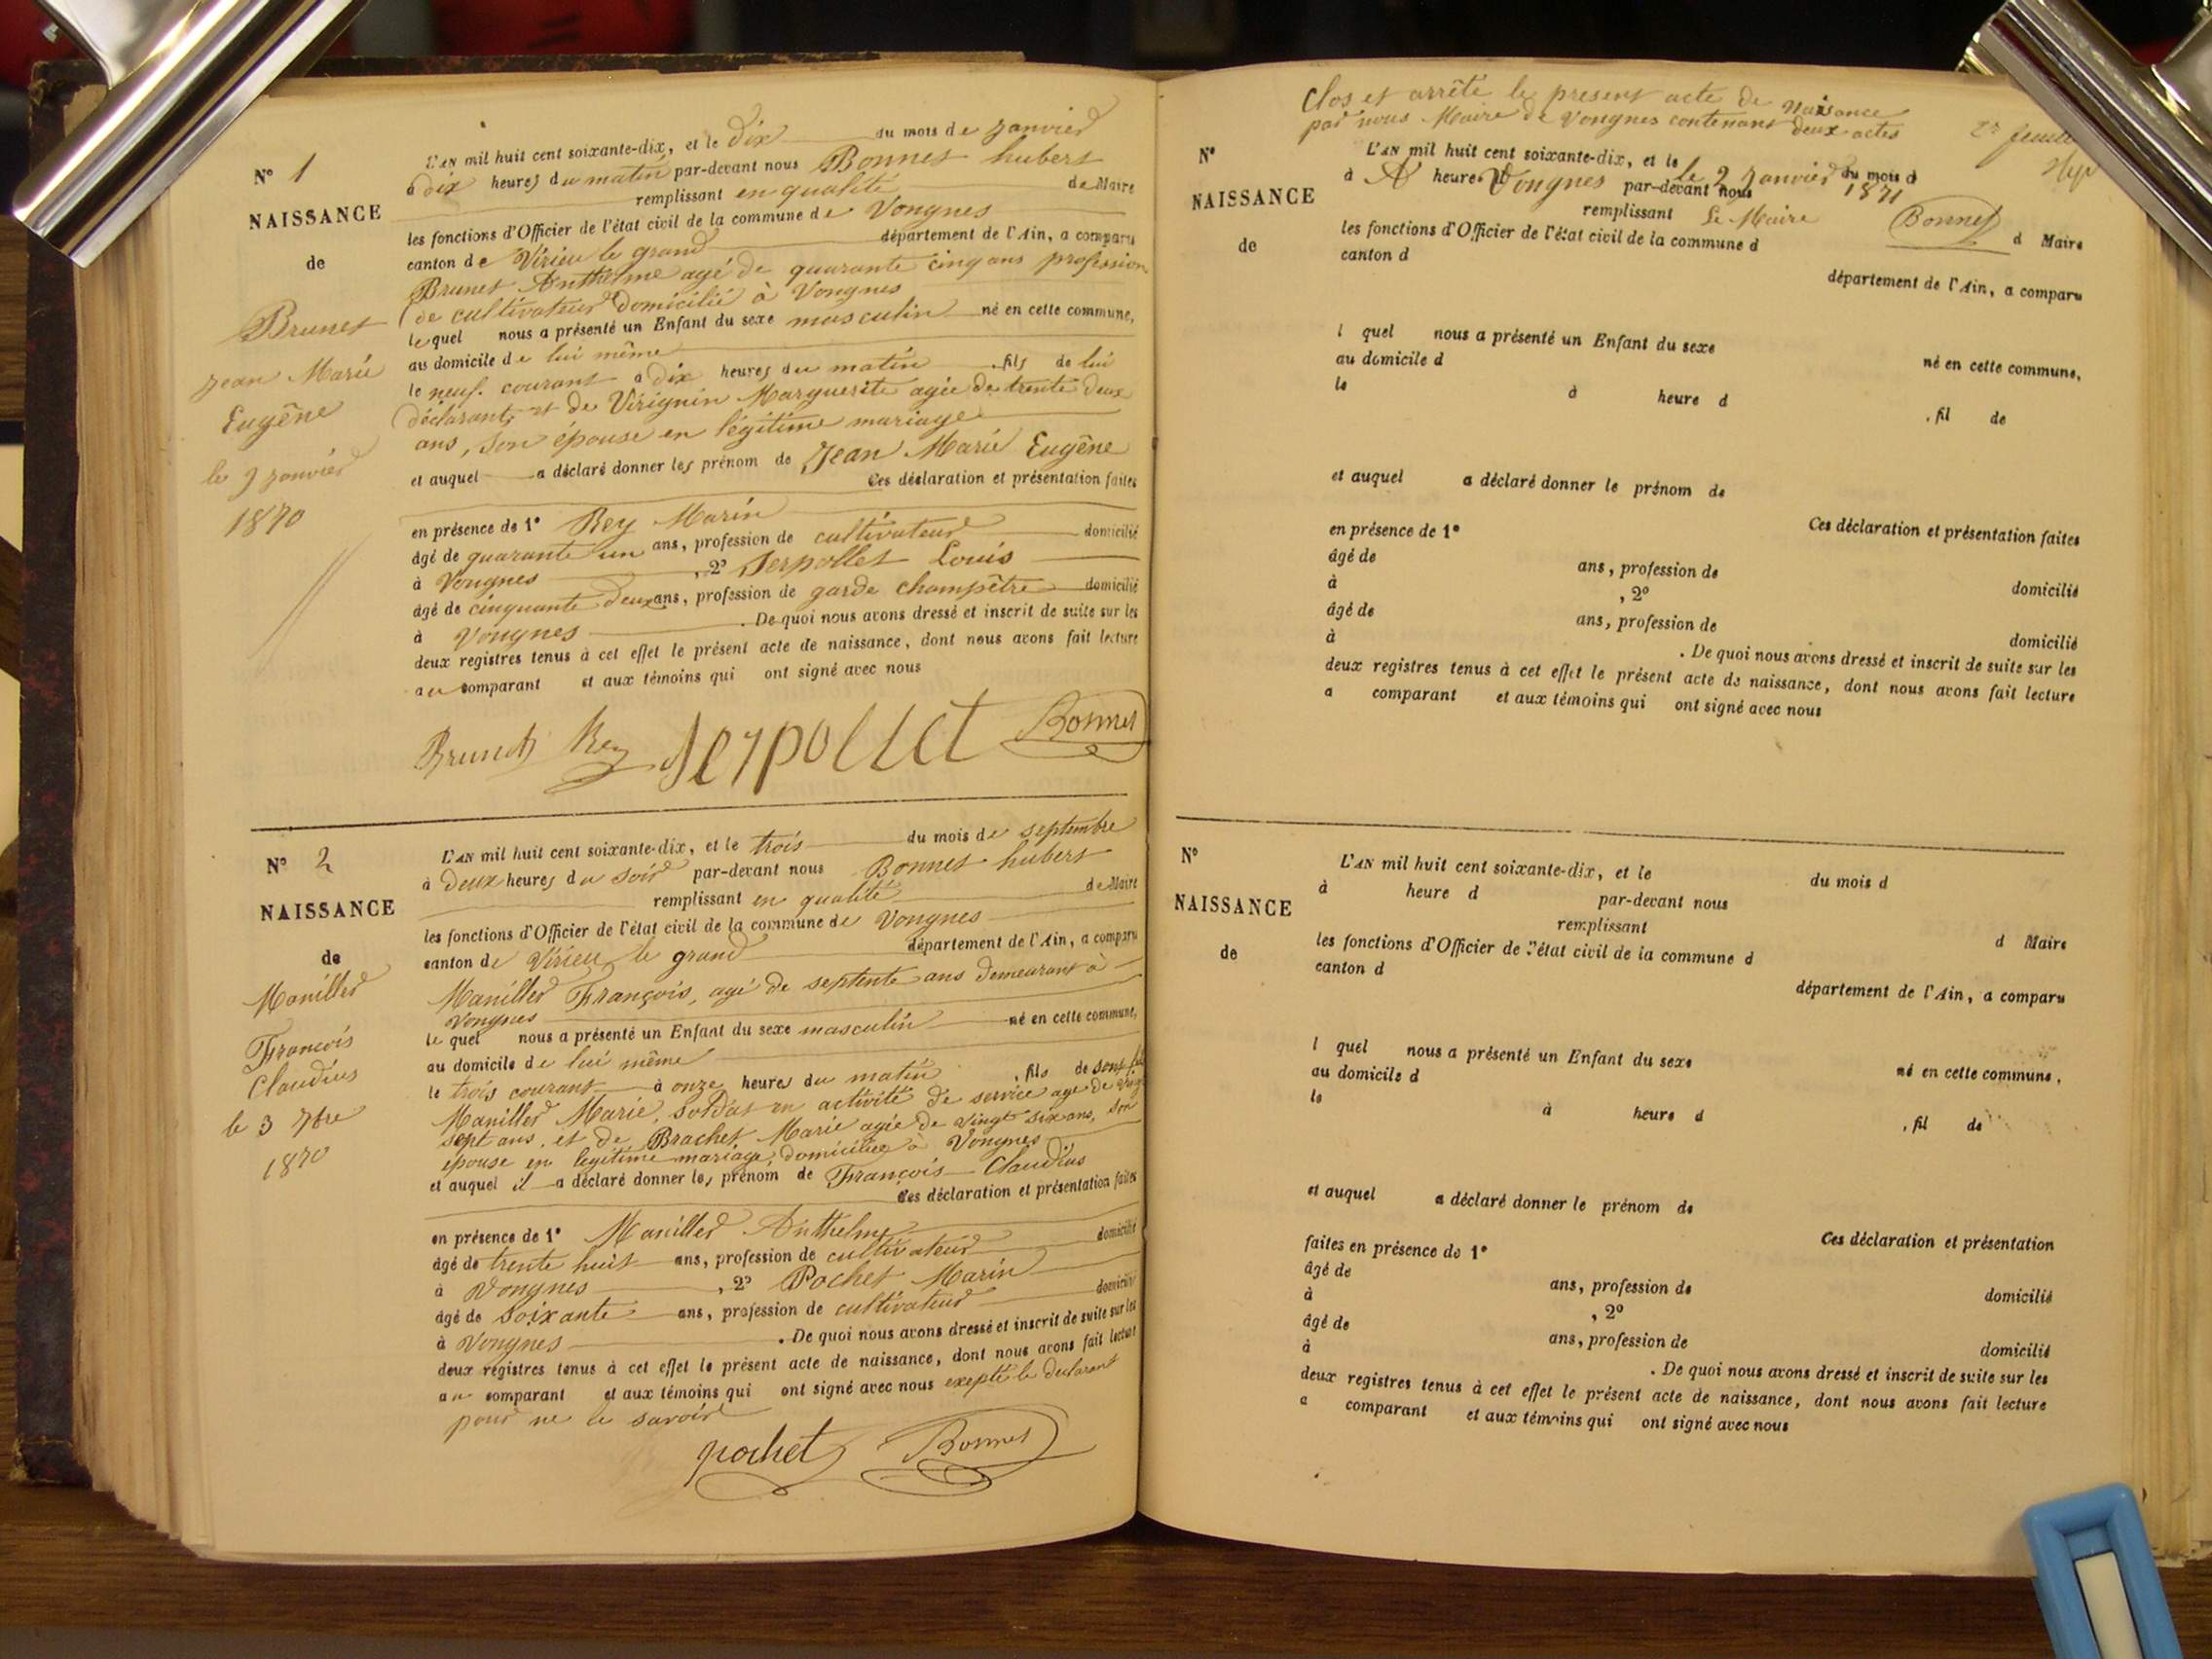 N° 1
NAISSANCE
de
Brunet
Jean Marie
Eugène
le 9 janvier
1870
L'AN mil huit cent soixante-dix, et le dix du mois de janvier
à dix heures du matin par-devant nous Bonnet hubert
remplissant en qualité de Maire
les fonctions d'Officier de l'état civil de la commune de Vongnes
canton de Virieu le grand département de l'Ain, a comparu
Brunet Anthelme agé de quarante cinq ans profession
de cultivateur domicilié à Vongnes
lequel nous a présenté un Enfant du sexe masculin né en cette commune,
au domicile de lui même
le neuf courant à dix heures du matin, fils de lui
déclarant, et de Virignin Marguerite agée de trente deux
ans, son épouse en légitime mariage
et auquel a déclaré donner les prénom de Jean Marie Eugène
Ces déclaration et présentation faites
en présence de 1° Rey Marin
âgé de quarante un ans, profession de cultivateur domicilié
à Vongnes, 2° Serpollet Louis
âgé de cinquante deux ans, profession de garde champêtre domicilié
à Vongnes. De quoi nous avons dressé et inscrit de suite sur les
deux registres tenus à cet effet le présent acte de naissance, dont nous avons fait lecture
au comparant et aux témoins qui ont signé avec nous
Brunet Rey Serpollet Bonnet
N° 2
NAISSANCE
de
Maniller
François
Claudius
le 3 7bre
1870
L'AN mil huit cent soixante-dix, et le trois du mois de septembre
à deux heures du soir par-devant nous Bonnet hubert
remplissant en qualité de Maire
les fonctions d'Officier de l'état civil de la commune de Vongnes
canton de Virieu le grand département de l'Ain, a comparu
Maniller François, agé de septente ans demeurant à
Vongnes
le quel nous a présenté un Enfant du sexe masculin né en cette commune,
au domicile de lui même
le trois courant à onze heures du matin, fils de son fils
Maniller Marie, soldat en activité de service agé de vingt
sept ans, et de Brachet Marie agée de vingt six ans, son
épouse en legitime mariage, domiciliée à Vongnes
et auquel il a déclaré donner les prénom de François Claudius
Ces déclaration et présentation faites
en présence de 1° Maniller Anthelme
âgé de trente huit ans, profession de cultivateur domicilié
à Vongnes, 2° Pochet Marin
âgé de soixante ans, profession de cultivateur domicilié
à Vongnes. De quoi nous avons dressé et inscrit de suite sur les
deux registres tenus à cet effet le présent acte de naissance, dont nous avons fait lecture
au comparant et aux témoins qui ont signé avec nous exepté le declarant
pour ne le savoir
pochet Bonnet
Clos et arrêté le present acte de naisance
par nous Maire de Vongnes contenant deux actes
2e feuille
N°
NAISSANCE
de
L'AN mil huit cent soixante-dix, et le le 2 janvier du mois d
à A heures Vongnes par-devant nous 1871
remplissant Le Maire Bonnet d Maire
les fonctions d'Officier de l'état civil de la commune d
canton d département de l'Ain, a comparu
l quel nous a présenté un Enfant du sexe né en cette commune,
au domicile d
le à heure d , fil de
et auquel a déclaré donner le prénom de
Ces déclaration et présentation faites
en présence de 1°
âgé de ans, profession de domicilié
à , 2°
âgé de ans, profession de domicilié
à . De quoi nous avons dressé et inscrit de suite sur les
deux registres tenus à cet effet le présent acte de naissance, dont nous avons fait lecture
a comparant et aux témoins qui ont signé avec nous
N°
NAISSANCE
de
L'AN mil huit cent soixante-dix, et le du mois d
à heure d par-devant nous
remplissant d Maire
les fonctions d'Officier de l'état civil de la commune d
canton d département de l'Ain, a comparu
l quel nous a présenté un Enfant du sexe né en cette commune,
au domicile d
le à heure d , fil de
et auquel a déclaré donner le prénom de
Ces déclaration et présentation
faites en présence de 1°
âgé de ans, profession de domicilié
à , 2°
âgé de ans, profession de domicilié
à . De quoi nous avons dressé et inscrit de suite sur les
deux registres tenus à cet effet le présent acte de naissance, dont nous avons fait lecture
a comparant et aux témoins qui ont signé avec nous